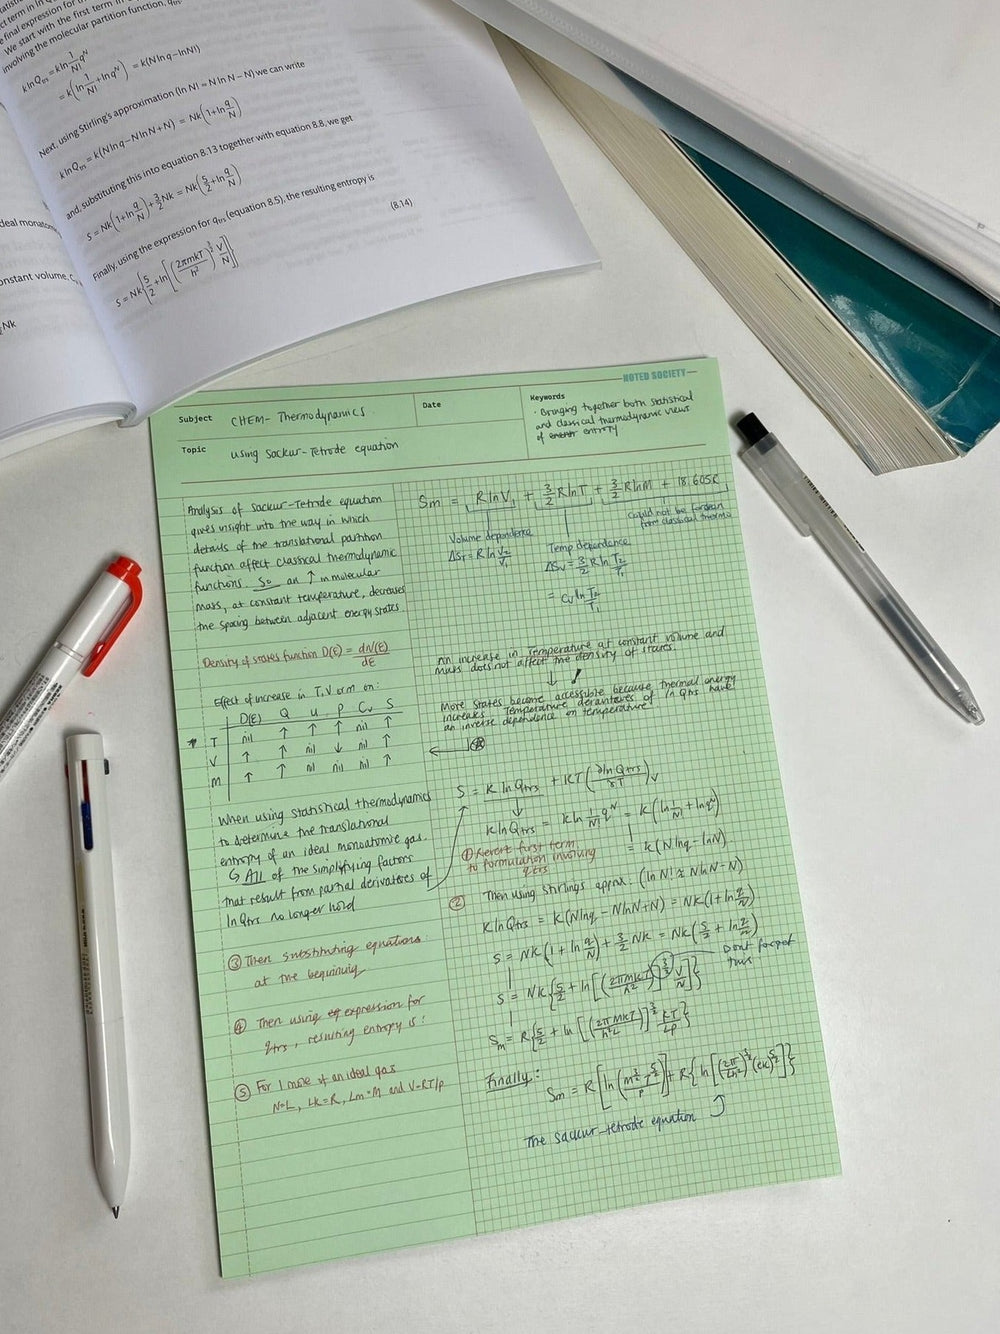 final expression for
We start with the first term in
involving the molecular partition function, q
k ln Qtrs = k ln 1/N! q^N
= k(ln 1/N! + ln q^N) = k(N ln q − ln N!)
Next, using Stirling's approximation (ln N! ≈ N ln N − N) we can write
k ln Qtrs = k(N ln q − N ln N + N) = Nk(1 + ln q/N)
and, substituting this into equation 8.13 together with equation 8.8, we get
S = Nk(1 + ln q/N) + 3/2 Nk = Nk(5/2 + ln q/N)
(8.14)
Finally, using the expression for qtrs (equation 8.5), the resulting entropy is
S = Nk{5/2 + ln[(2πmkT/h²)^3/2 V/N]}
deal monatom
onstant volume, C
Nk
NOTED SOCIETY
Subject CHEM- Thermodynamics
Date
Keywords
· Bringing together both statistical
and classical thermodynamic views
of entropy
Topic using Sackur-Tetrode equation
Analysis of Sackur-Tetrode equation
gives insight into the way in which
details of the translational partition
function affect classical thermodynamic
functions. So an ↑ in molecular
mass, at constant temperature, decreases
the spacing between adjacent energy states.
Density of states function D(E) = dN(E)/dE
Effect of increase in T, V or m on:
D(E) Q U P Cv S
T nil ↑ ↑ ↑ nil ↑
V ↑ ↑ nil ↓ nil ↑
M ↑ ↑ nil nil nil ↑
When using statistical thermodynamics
to determine the translational
entropy of an ideal monoatomic gas.
↳ All of the simplifying factors
that result from partial derivatives of
ln Qtrs no longer hold
③ Then substituting equations
at the beguining
④ Then using expression for
qtrs, resulting entropy is:
⑤ For 1 mole of an ideal gas
N=L, Lk=R, Lm=M and V=RT/p
Sm = R ln V + 3/2 R ln T + 3/2 R ln M + 18.605R
Volume dependence
ΔST = R ln V2/V1
Temp dependance
ΔSV = 3/2 R ln T2/T1
= Cv ln T2/T1
could not be foreseen
from classical thermo
An increase in temperature at constant volume and
mass does not affect the density of states.
↓ !
More states become accessible because thermal energy
increases Temperature derivatives of ln Qtrs have
an inverse dependence on temperature
S = K ln Qtrs + KT(∂ln Qtrs/∂T)V
K ln Qtrs = K ln 1/N! q^N = K(ln 1/N! + ln q^N)
= K(N ln q − ln N)
① Revert first term
to formulation involving
qtrs
② Then using Stirlings approx. (ln N! ≈ N ln N − N)
K ln Qtrs = K(N ln q − N ln N + N) = NK(1 + ln q/N)
S = NK(1 + ln q/N) + 3/2 NK = NK(5/2 + ln q/N)
Dont forget
this
S = NK{5/2 + ln[(2πmKT/h²)^3/2 V/N]}
Sm = R{5/2 + ln[(2πMKT/h²L)^3/2 RT/LP]}
Finally:
Sm = R[ln(M^3/2 T^5/2/P)] + R{ln[(2π/Lh²)^3/2 (eK)^5/2]}
The Sackur-Tetrode equation